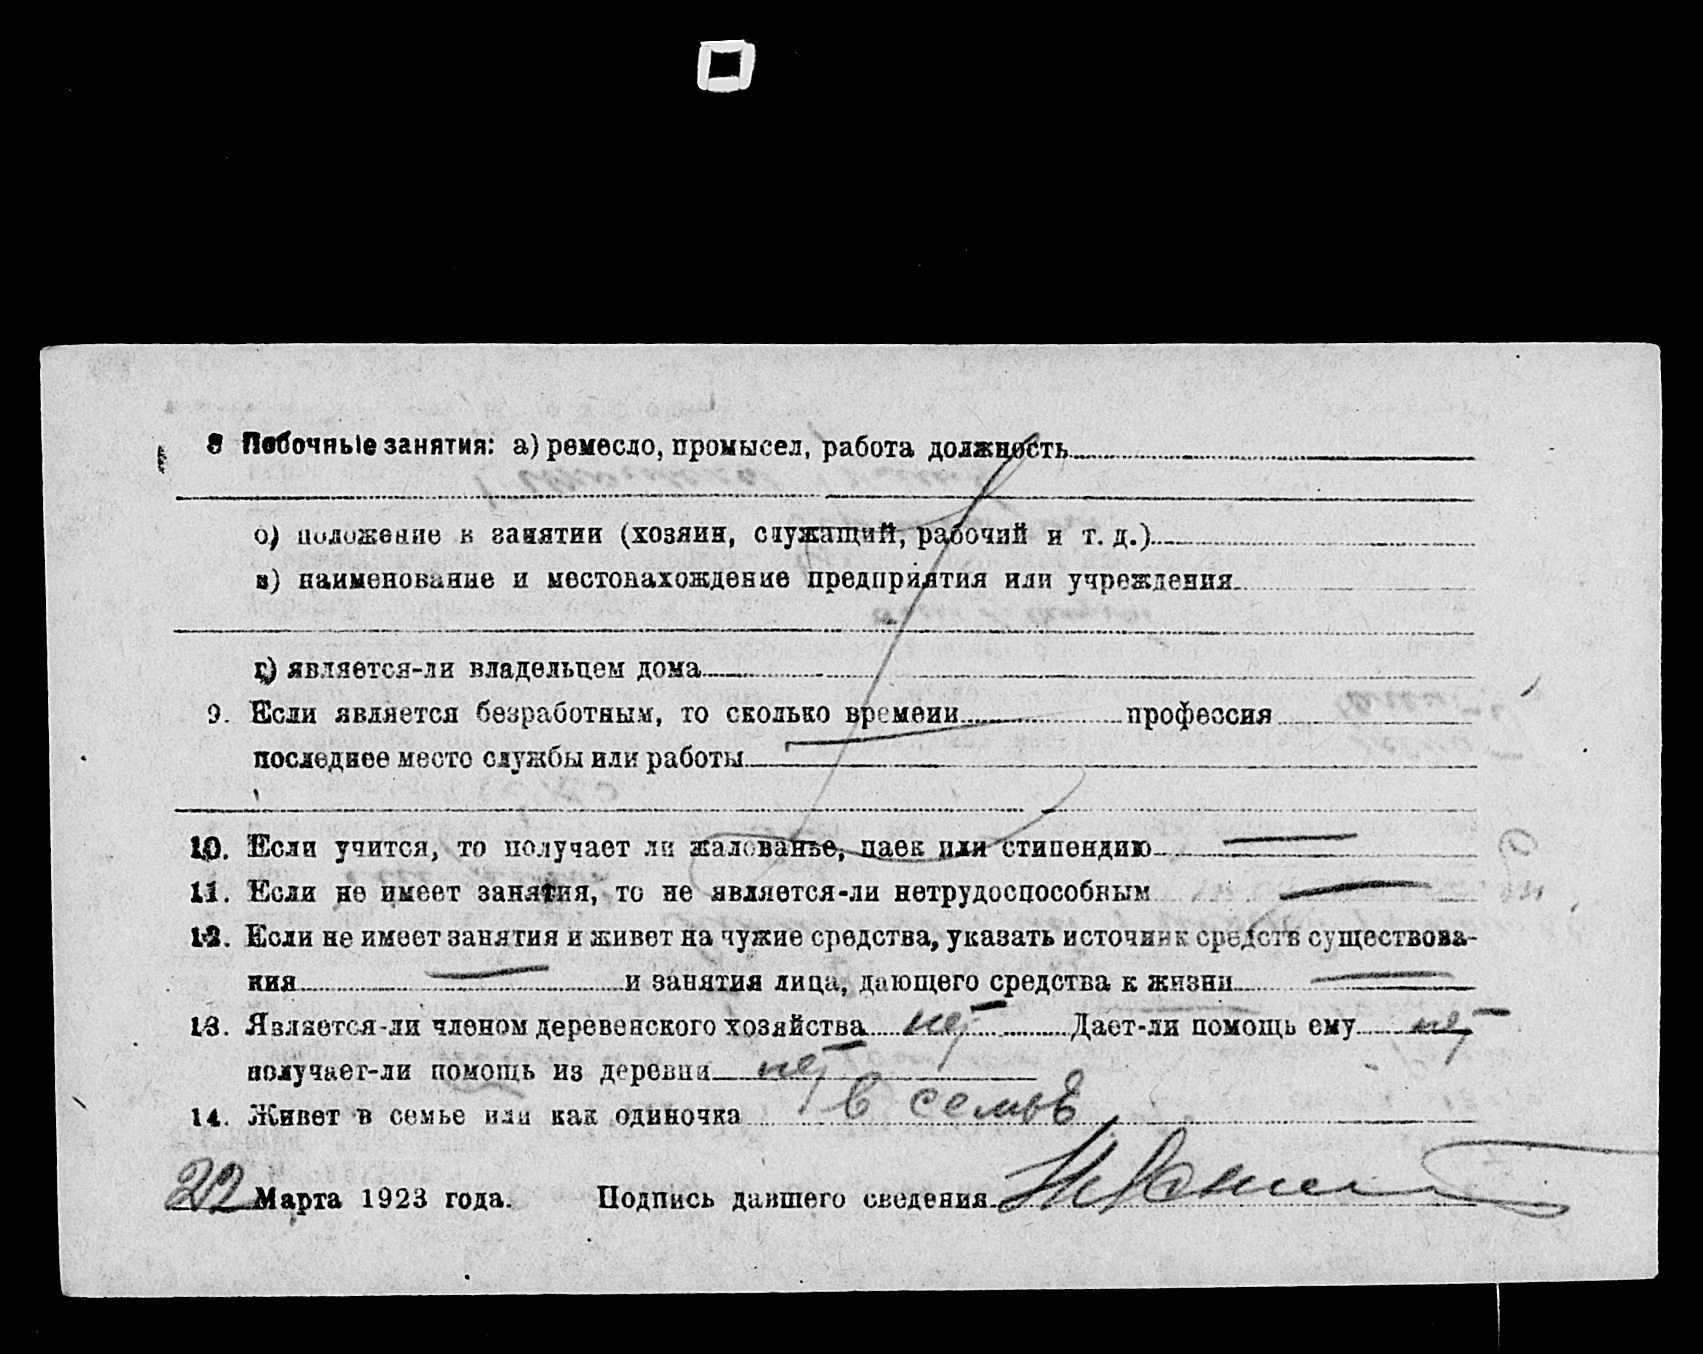 8 Побочные занятия: а) ремесло, промысел, работа должность
б) положение в занятии (хозяин, служащий, рабочий и т. д.)
в) наименование и местонахождение предприятия или учреждения
г) является-ли владельцем дома
9. Если является безработным, то сколько времени профессия
последнее место службы или работы
10. Если учится, то получает ли жалованье, паек или стипендию —
11. Если не имеет занятия, то не является-ли нетрудоспособным —
12. Если не имеет занятия и живет на чужие средства, указать источник средств существова-
ния — и занятия лица, дающего средства к жизни —
13. Является-ли членом деревенского хозяйства нет Дает-ли помощь ему нет
получает-ли помощь из деревни нет
14. Живет в семье или как одиночка в семьѣ
22 Марта 1923 года. Подпись давшего сведения